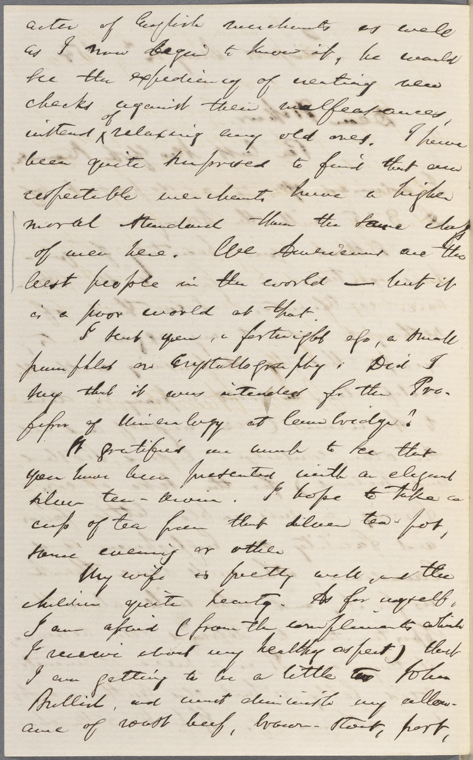 acter of English merchants as well
as I now begin to know it, he would
see the expediency of creating new
checks against their malfeasances,
instead of relaxing any old ones. I have
been quite surprised to find that our
respectable merchants have a higher
moral standard than the same class
of men here. We Americans are the
best people in the world — but it
is a poor world at that.
I sent you, a fortnight ago, a small
pamphlet on Crystallography; Did I
say that it was intended for the Pro-
fessor of Mineralogy at Cambridge?
It gratifies me much to see that
you have been presented with an elegant
silver tea-urn. I hope to take a
cup of tea from that silver tea-pot,
some evening or other
My wife is pretty well, and the
children quite hearty. As for myself,
I am afraid (from the compliments which
I receive about my healthy aspect) that
I am getting to be a little too John
Bullish, and must diminish my allow-
ance of roast beef, brown-stout, port,